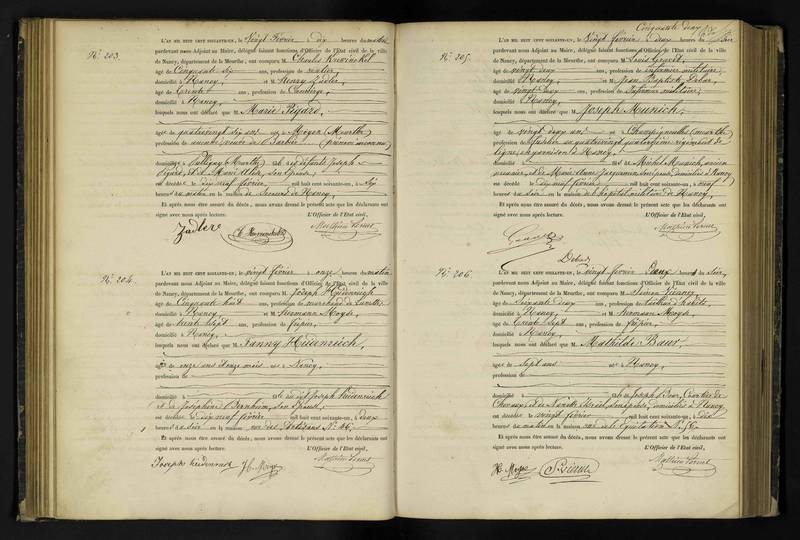 N° 203.
L'AN MIL HUIT CENT SOIXANTE-UN, le Vingt Février à dix heures du matin
pardevant nous Adjoint au Maire, délégué faisant fonctions d'Officier de l'Etat civil de la ville
de Nancy, département de la Meurthe, ont comparu M. Charles
âgé de Cinquante six ans, profession de rentier
domicilié à Nancy, et M. Henry Zadler,
âgé de trente ans, profession de Concierge,
domicilié à Nancy,
lesquels nous ont déclaré que M. Marie Pigard,
âgée de quatrevingt dix ans née à Moyen (Meurthe)
profession de veuve de Barbier (prénom inconnu)
domiciliée à (Meurthe) et Joseph
Pigard, et de Marie son épouse
est décédée le dix neuf février mil huit cent soixante-un, à
heures du matin en la maison de Secours de Nancy,
Et après nous être assuré du décès, nous avons dressé le présent acte que les déclarants ont
signé avec nous après lecture. L'Officier de l'Etat civil,
Zadler
N° 204.
L'AN MIL HUIT CENT SOIXANTE-UN, le vingt février à onze heures du matin
pardevant nous Adjoint au Maire, délégué faisant fonctions d'Officier de l'Etat civil de la ville
de Nancy, département de la Meurthe, ont comparu M. Joseph Heidenreich
âgé de Cinquante huit ans, profession de marchand de Lunettes
domicilié à Nancy, et M. Hermann Moyse,
âgé de trente sept ans, profession de fripier,
domicilié à Nancy,
lesquels nous ont déclaré que M. Fanny Heidenreich,
âgée de onze ans Douze mois née à Nancy,
profession de
domiciliée à et de Joseph Heidenreich
et de Joséphine Bernheim, son Epouse,
est décédée le dix neuf février mil huit cent soixante-un, à deux
heures du soir en la maison rue des Artisans N° 46,
Et après nous être assuré du décès, nous avons dressé le présent acte que les déclarants ont
signé avec nous après lecture. L'Officier de l'Etat civil,
Joseph Heidenreich H. Moyse
Cinquante deux
N° 205.
L'AN MIL HUIT CENT SOIXANTE-UN, le Vingt février à deux heures du Soir
pardevant nous Adjoint au Maire, délégué faisant fonctions d'Officier de l'Etat civil de la ville
de Nancy, département de la Meurthe, ont comparu M. Louis
âgé de vingt deux ans, profession de infirmier militaire,
domicilié à Nancy, et M. Jean Baptiste
âgé de vingt deux ans, profession de Infirmier militaire,
domicilié à Nancy,
lesquels nous ont déclaré que M. Joseph Munich,
âgé de vingt deux ans né à Champigneulles (Meurthe)
profession de fusilier au quatrevingt quatorzième régiment de
ligne, en garnison à Nancy, fils de Michel Munich, ancien
et de Marie Anne son épouse, domiciliés à Nancy
est décédé le dix neuf février mil huit cent soixante-un, à neuf
heures du soir en la maison de l'hôpital militaire de Nancy,
Et après nous être assuré du décès, nous avons dressé le présent acte que les déclarants ont
signé avec nous après lecture. L'Officier de l'Etat civil,
N° 206.
L'AN MIL HUIT CENT SOIXANTE-UN, le vingt février à Deux heures du Soir,
pardevant nous Adjoint au Maire, délégué faisant fonctions d'Officier de l'Etat civil de la ville
de Nancy, département de la Meurthe, ont comparu M.
âgé de Soixante deux ans, profession de
domicilié à Nancy, et M. Hermann Moyse,
âgé de trente sept ans, profession de fripier,
domicilié à Nancy,
lesquels nous ont déclaré que M. Mathilde Baur,
âgée de Sept ans née à Nancy,
profession de
domiciliée à fille de Joseph Baur, Courtier de
Chevaux, et de Nanette son épouse, domiciliés à Nancy
est décédée le vingt février mil huit cent soixante-un, à dix
heures du matin en la maison rue de l'Equitation N° 56,
Et après nous être assuré du décès, nous avons dressé le présent acte que les déclarants ont
signé avec nous après lecture. L'Officier de l'Etat civil,
H. Moyse